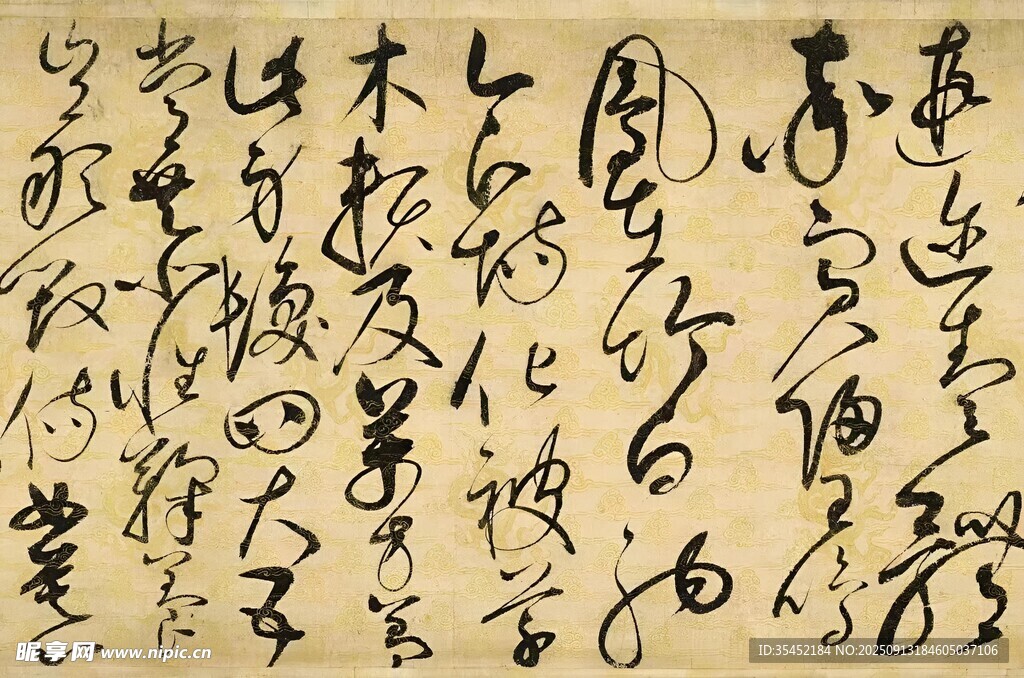 遐邇壹體
率賓歸王鳴
鳳在竹白駒
食場化被草
木賴及萬方蓋
此身髮四大五
常恭惟鞠養
豈敢毀傷女慕
昵享网 www.nipic.cn
ID:35452184 NO:20250913184605037106